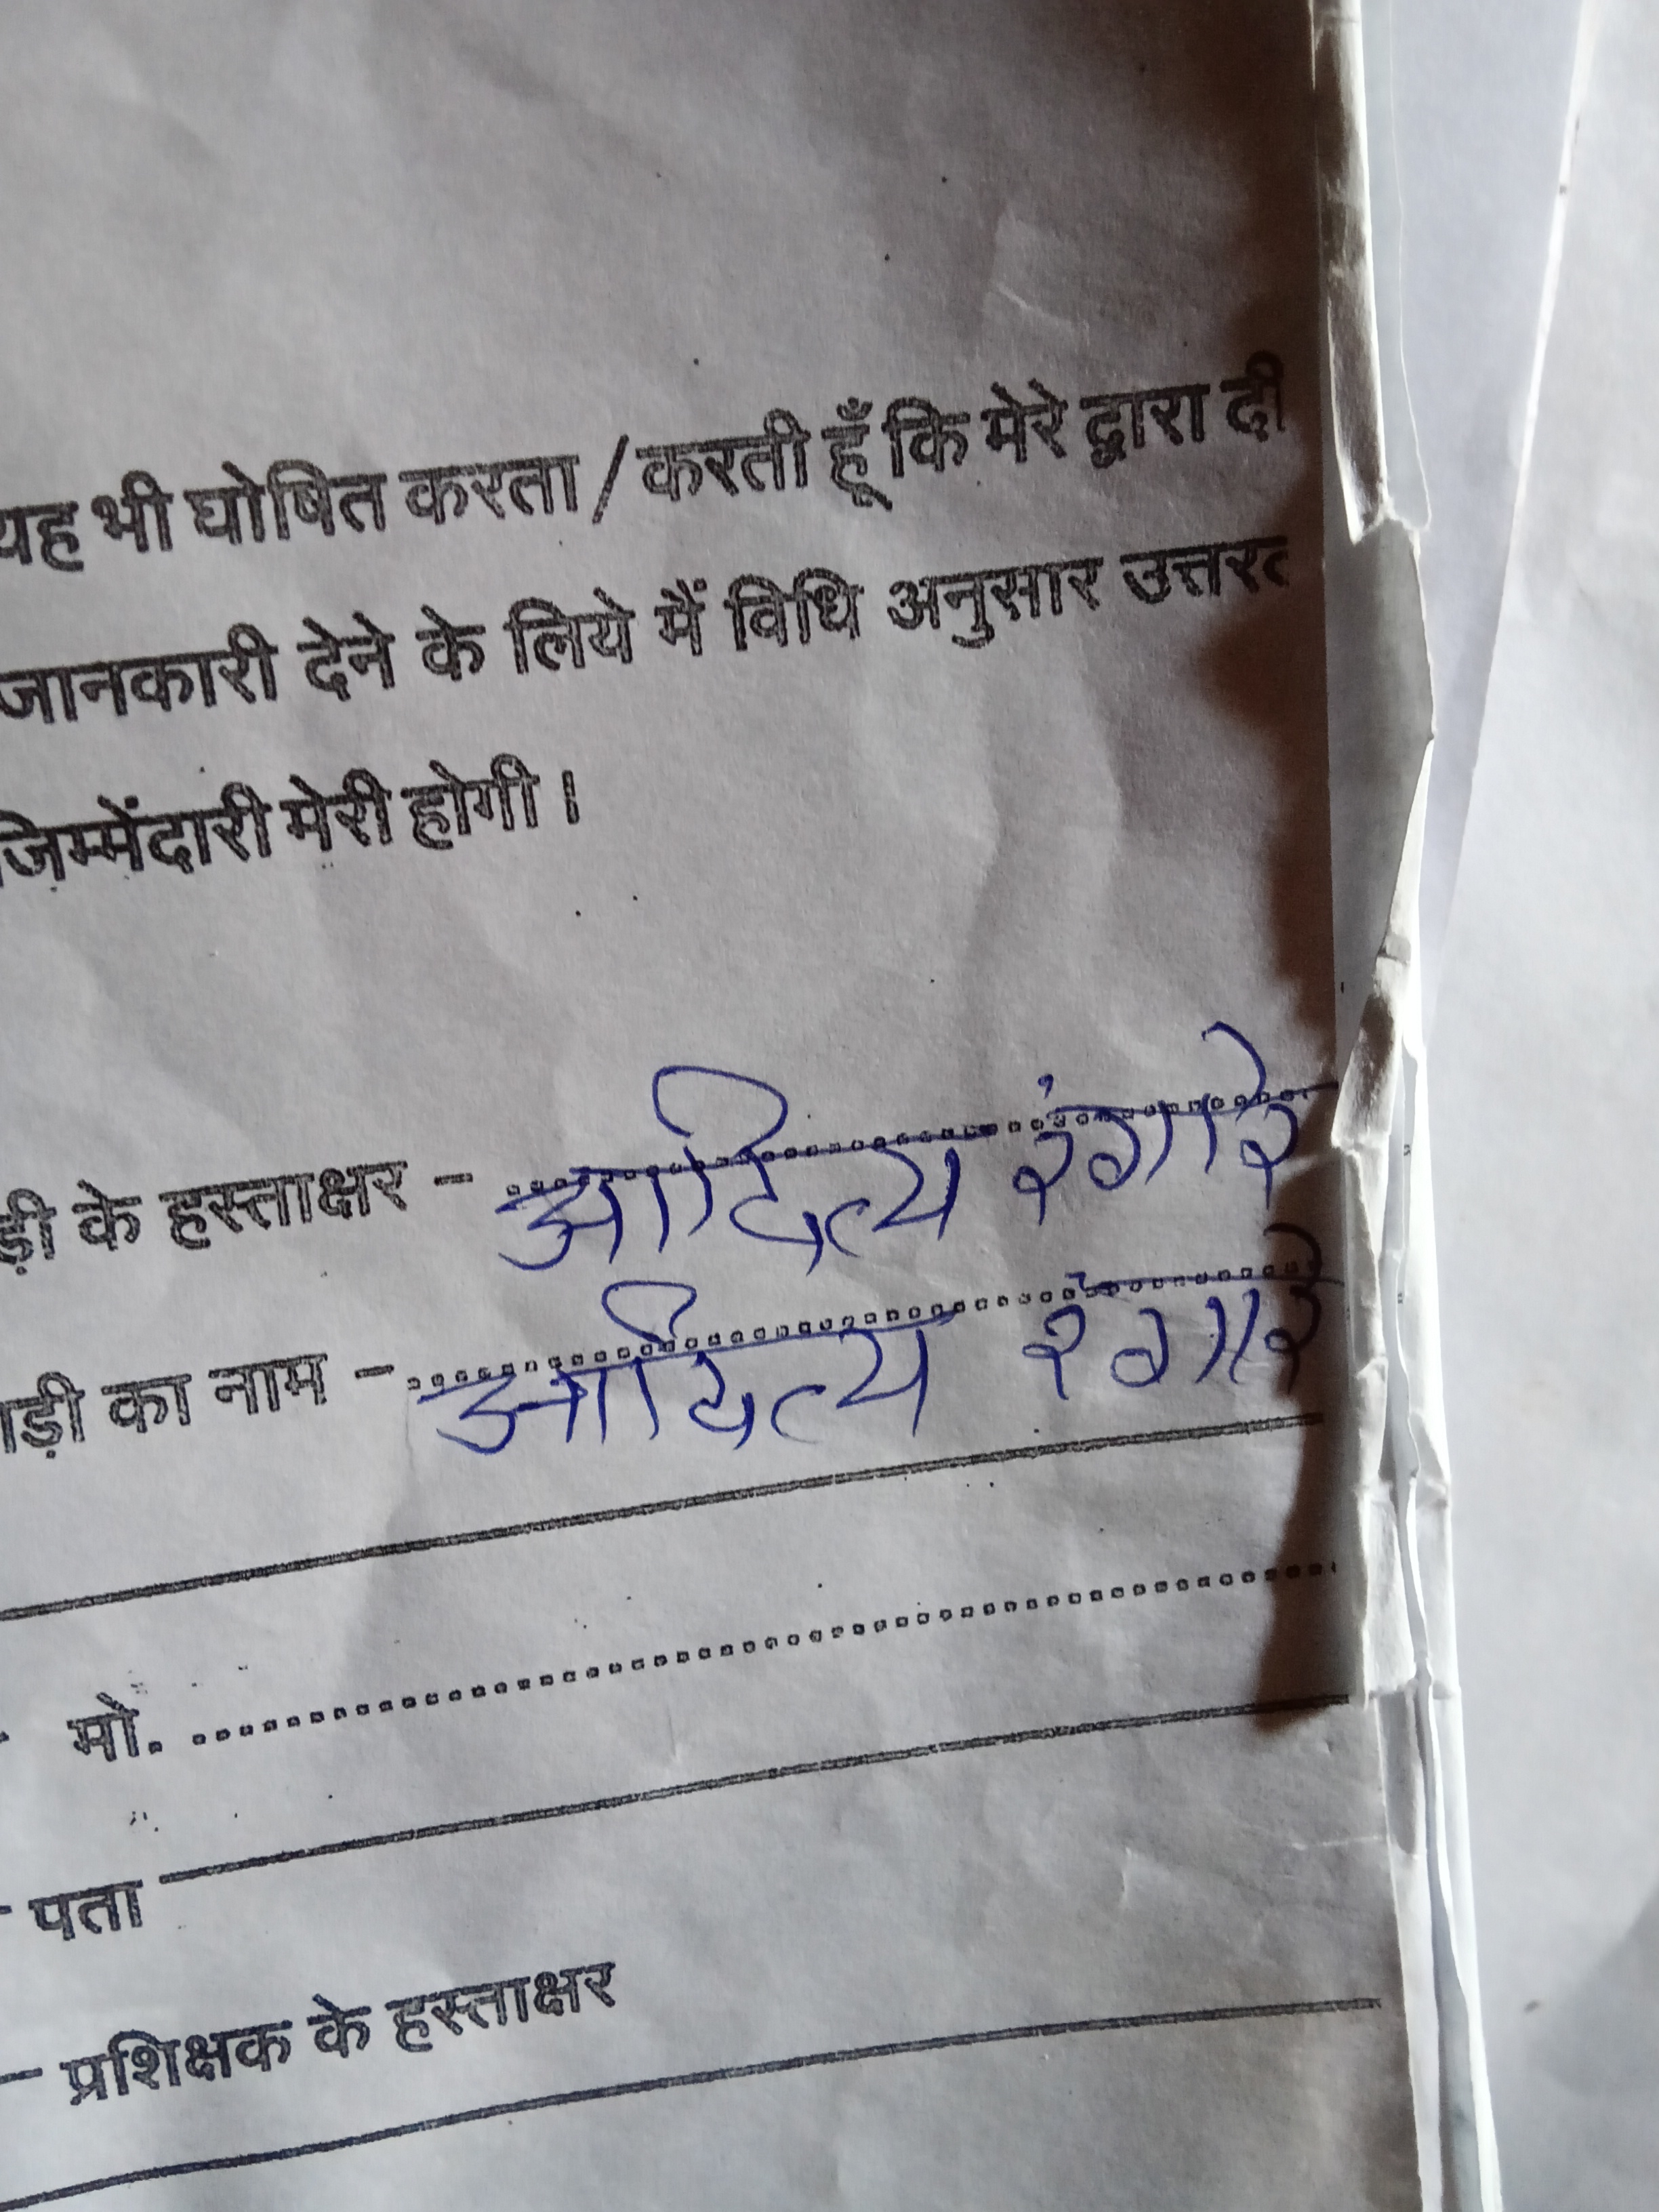 यह भी घोषित करता / करती हूँ कि मेरे द्वारा दी
जानकारी देने के लिये मैं विधि अनुसार
जिम्मेंदारी मेरी होगी ।
ड़ी के हस्ताक्षर - आदित्य रंगारे
ाड़ी का नाम - आदित्य रंगारे
मो.
- पता
- प्रशिक्षक के हस्ताक्षर